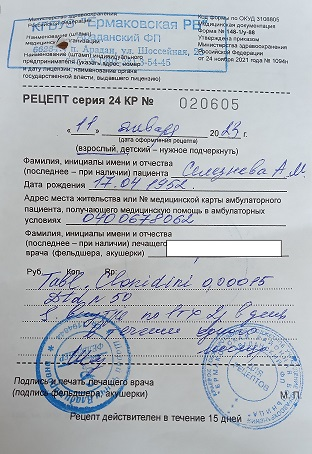 Министерство здравоохранения
КГБУЗ "Ермаковская РБ"
Араданский ФП
п. Арадан, ул. Шоссейная,
Наименование (штамп)
медицинской организации
Наименование (штамп) индивидуального
предпринимателя (указать адрес, номер
и дату лицензии, наименование органа
государственной власти, выдавшего лицензию)
Код формы по ОКУД 3108805
Медицинская документация
форма № 148-1/у-88
Утверждена приказом
Министерства здравоохранения
Российской Федерации
от 24 ноября 2021 года № 1094н
РЕЦЕПТ серия 24 КР № 020605
« 11 » января 20 24 г.
(дата оформления рецепта)
(взрослый, детский – нужное подчеркнуть)
Фамилия, инициалы имени и отчества
(последнее – при наличии) пациента Селезнева А.М.
Дата рождения 17.04 1952.
Адрес места жительства или № медицинской карты амбулаторного
пациента, получающего медицинскую помощь в амбулаторных
условиях 0400678062
Фамилия, инициалы имени и отчества
(последнее – при наличии) лечащего
врача (фельдшера, акушерки)
Руб. Коп. Rp.
Tabl. Clonidini 0,000075
Dtd N 50
S. внутрь по 1т х 2р в день
в течение одного
месяца
Подпись и печать лечащего врача
(подпись фельдшера, акушерки)
М.П.
Рецепт действителен в течение 15 дней